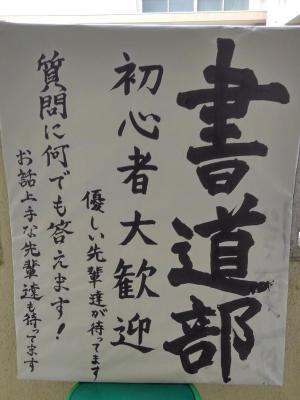 書道部
初心者大歓迎
優しい先輩達が待ってます
質問に何でも答えます!
お話上手な先輩達も待ってます